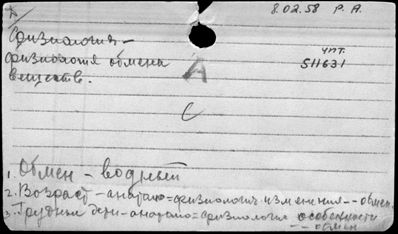 8.02.58 Р.А.
Физиология –
физиология обмена
веществ.
чит.
511631
А
С
1. Обмен – водный
2. Возраст – анатомо=физиологич. изменения – – обмен
3. Грудные дети – анатомо=физиология особенности
– – обмен